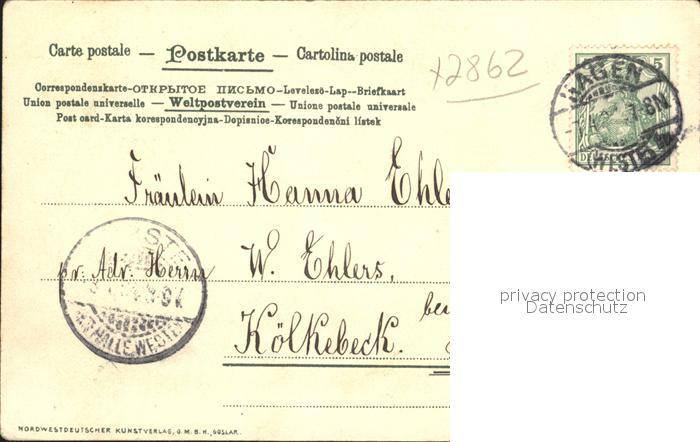 Carte postale — Postkarte — Cartolina postale
x2862
Correspondenskarte-ОТКРЫТОЕ ПИСЬМО-Levelező-Lap--Briefkaart
Union postale universelle — Weltpostverein — Unione postale universale
Post card-Karta korespondencyjna-Dopisnice-Korespondenční lístek
5
HAGEN
8N
(WESTF.)
Fräulein Hanna Ehle
pr. Adr. Herrn W. Ehlers,
Kölkebeck.
HALLE, WESTF
privacy protection
Datenschutz
NORDWESTDEUTSCHER KUNSTVERLAG, G.M.B.H., GOSLAR.